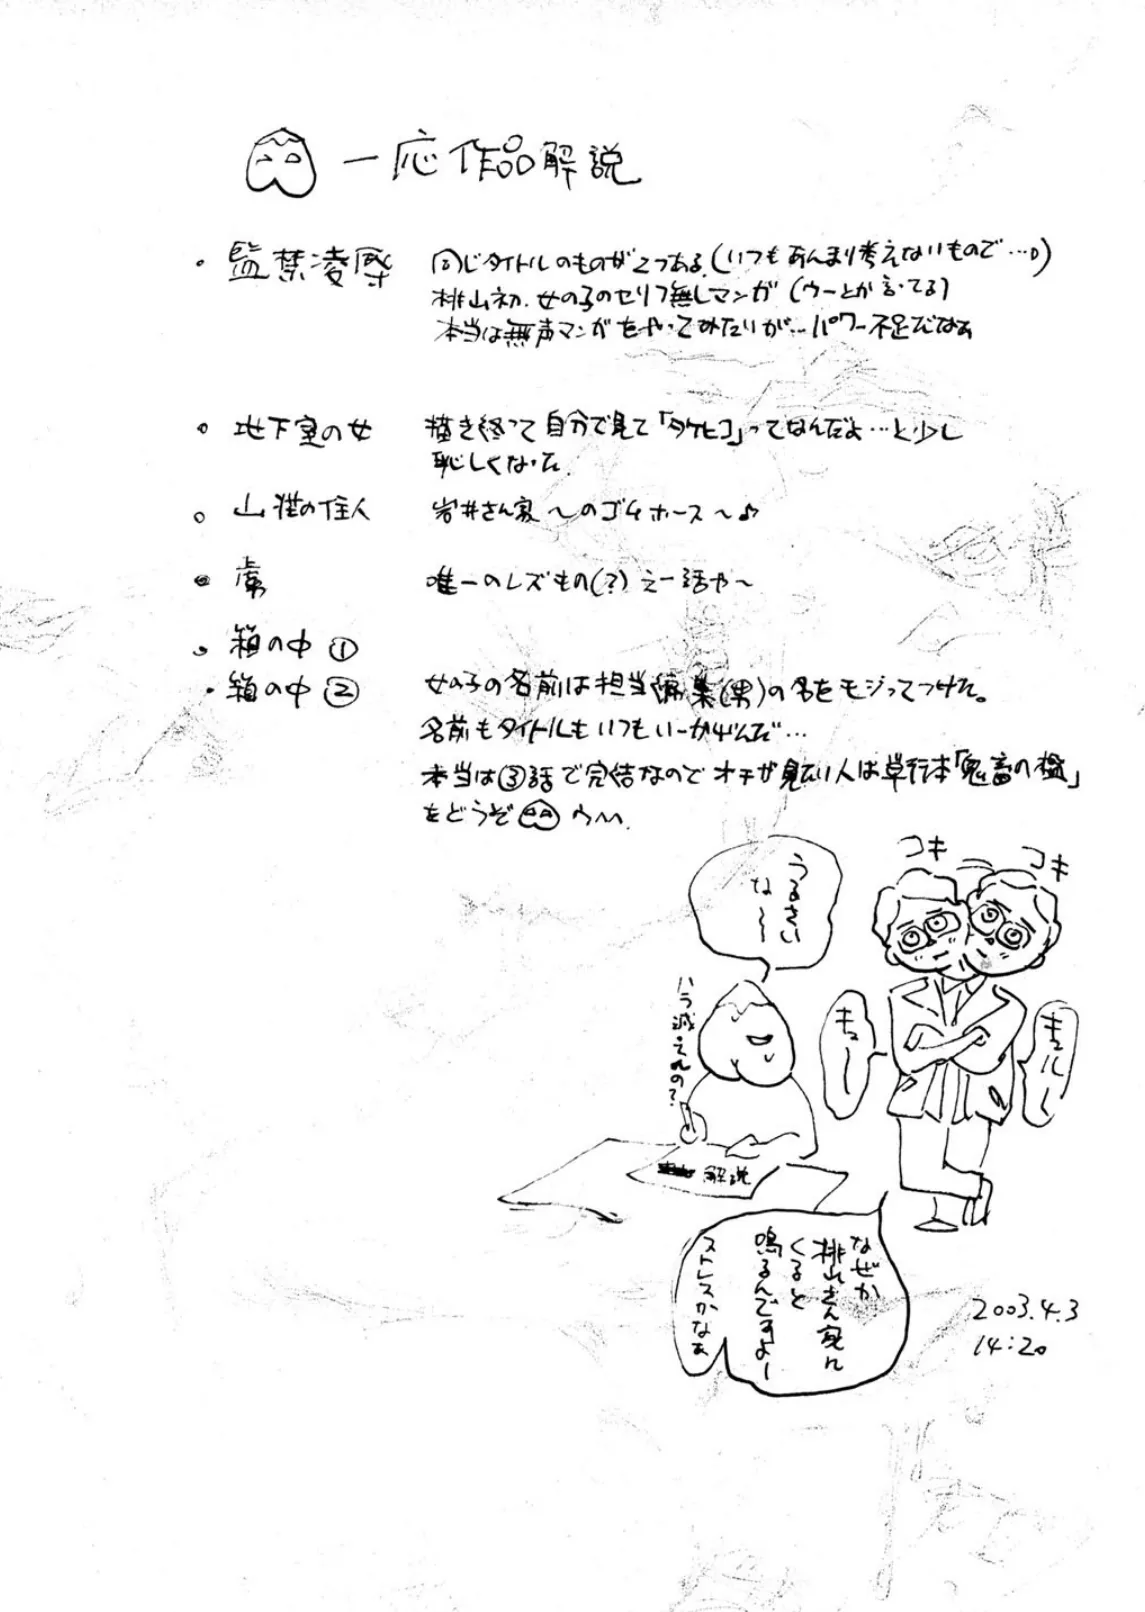 一応作品解説
・監禁凌辱 同じタイトルのものが2つある(いつもあんまり考えないもので…。)
桃山初、女の子のセリフ無しマンガ(ウーとか言ってる)
本当は無声マンガをやってみたいが…パワー不足だなぁ
・地下室の女 描き終って自分で見て「タケヒコ」ってなんだよ…と少し
恥しくなった。
・山荘の住人 岩井さん家〜のゴムホース〜♪
・虜 唯一のレズもの(?)えー話や〜
・箱の中①
・箱の中② 女の子の名前は担当編集(男)の名をモジってつけた。
名前もタイトルもいつもいーかげんだ…
本当は③話で完結なのでオチが見たい人は単行本「鬼畜の檻」
をどうぞ ウ〜。
コキ
コキ
うるさい
な〜
ハラ減ってんの?
キュー
キュルー
解説
なぜか
桃山さん家に
くると
鳴るんですよー
ストレスかなぁ
2003.4.3
14:20